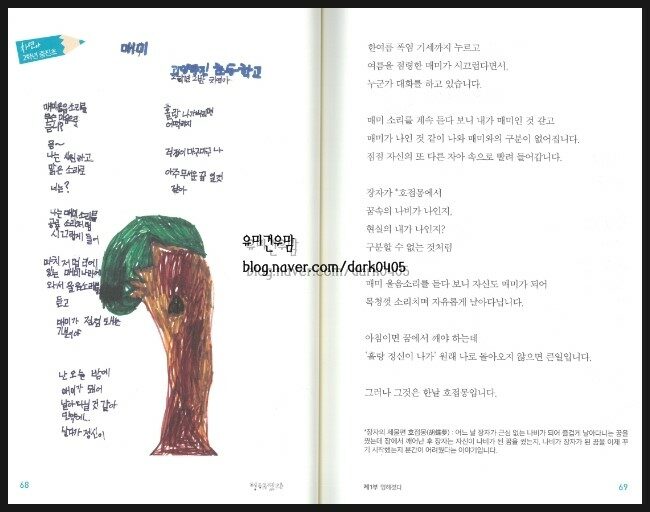 매미
매미울음소리를
듣니?
음~
나는 시원하고
맑은 소리로
너는?
나는 매미 소리를
시끄럽게 들어
와서 울음소리를
듣고
난 오늘 밤에
매미가 되어
날아다닐 것 같아
날다가 정신이
홀랑 나가버리면
어떡하지
걱정이 마구마구 나
아주 무서운 꿈 일 것
같아
68
한여름 폭염 기세까지 누르고
여름을 점령한 매미가 시끄럽다면서,
누군가 대화를 하고 있습니다.
매미 소리를 계속 듣다 보니 내가 매미인 것 같고
매미가 나인 것 같이 나와 매미와의 구분이 없어집니다.
점점 자신의 또 다른 자아 속으로 빨려 들어갑니다.
장자가 *호접몽에서
꿈속의 나비가 나인지,
현실의 내가 나인지?
구분할 수 없는 것처럼
매미 울음소리를 듣다 보니 자신도 매미가 되어
목청껏 소리치며 자유롭게 날아다닙니다.
아침이면 꿈에서 깨야 하는데
'홀랑 정신이 나가' 원래 나로 돌아오지 않으면 큰일입니다.
그러나 그것은 한낱 호접몽입니다.
*장자의 제물편 호접몽(胡蝶夢) : 어느 날 장자가 근심 없는 나비가 되어 즐겁게 날아다니는 꿈을
꿨는데 잠에서 깨어난 후 장자는 자신이 나비가 된 꿈을 꿨는지, 나비가 장자가 된 꿈을 이제 꾸
기 시작했는지 분간이 어려웠다는 이야기입니다.
제1부
69
유미건우맘
blog.naver.com/dark0405